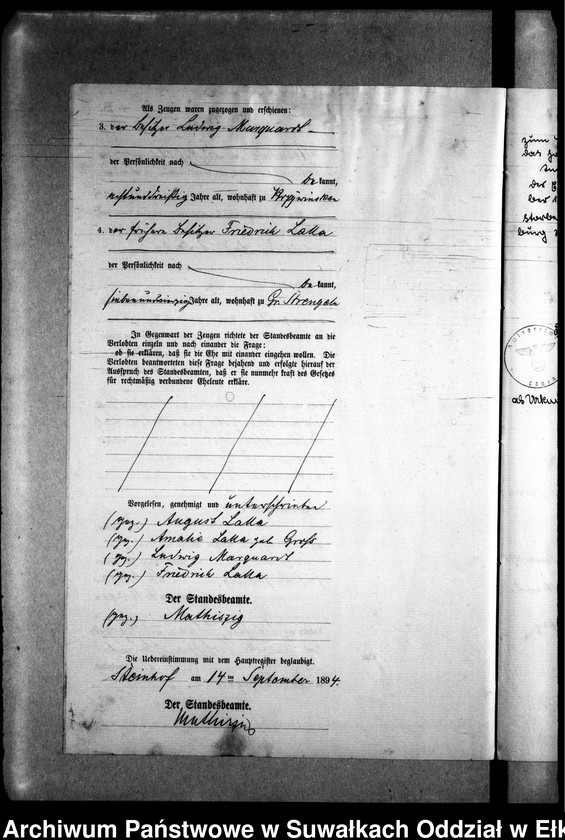 Als Zeugen waren zugezogen und erschienen:
3. der Besitzer Ludwig Marquardt
der Persönlichkeit nach
be kannt,
achtunddreißig Jahre alt, wohnhaft zu
4. der frühere Besitzer Friedrich Lalla
der Persönlichkeit nach
be kannt,
Jahre alt, wohnhaft zu Gr. Strengeln
In Gegenwart der Zeugen richtete der Standesbeamte an die
Verlobten einzeln und nach einander die Frage:
ob sie erklären, daß sie die Ehe mit einander eingehen wollen. Die
Verlobten beantworteten diese Frage bejahend und erfolgte hierauf der
Ausspruch des Standesbeamten, daß er sie nunmehr kraft des Gesetzes
für rechtmäßig verbundene Eheleute erkläre.
Vorgelesen, genehmigt und unterschrieben
(gez.) August Lalla
(gez.) Amalie Lalla geb. Groß
(gez.) Ludwig Marquardt
(gez.) Friedrich Lalla
Der Standesbeamte.
(gez.) Mathiszig
Die Uebereinstimmung mit dem Hauptregister beglaubigt.
Steinhof am 14ten September 1894.
Der Standesbeamte.
Mathiszig
zum
das
der
als Urkun
Archiwum Państwowe w Suwałkach Oddział w Ełk